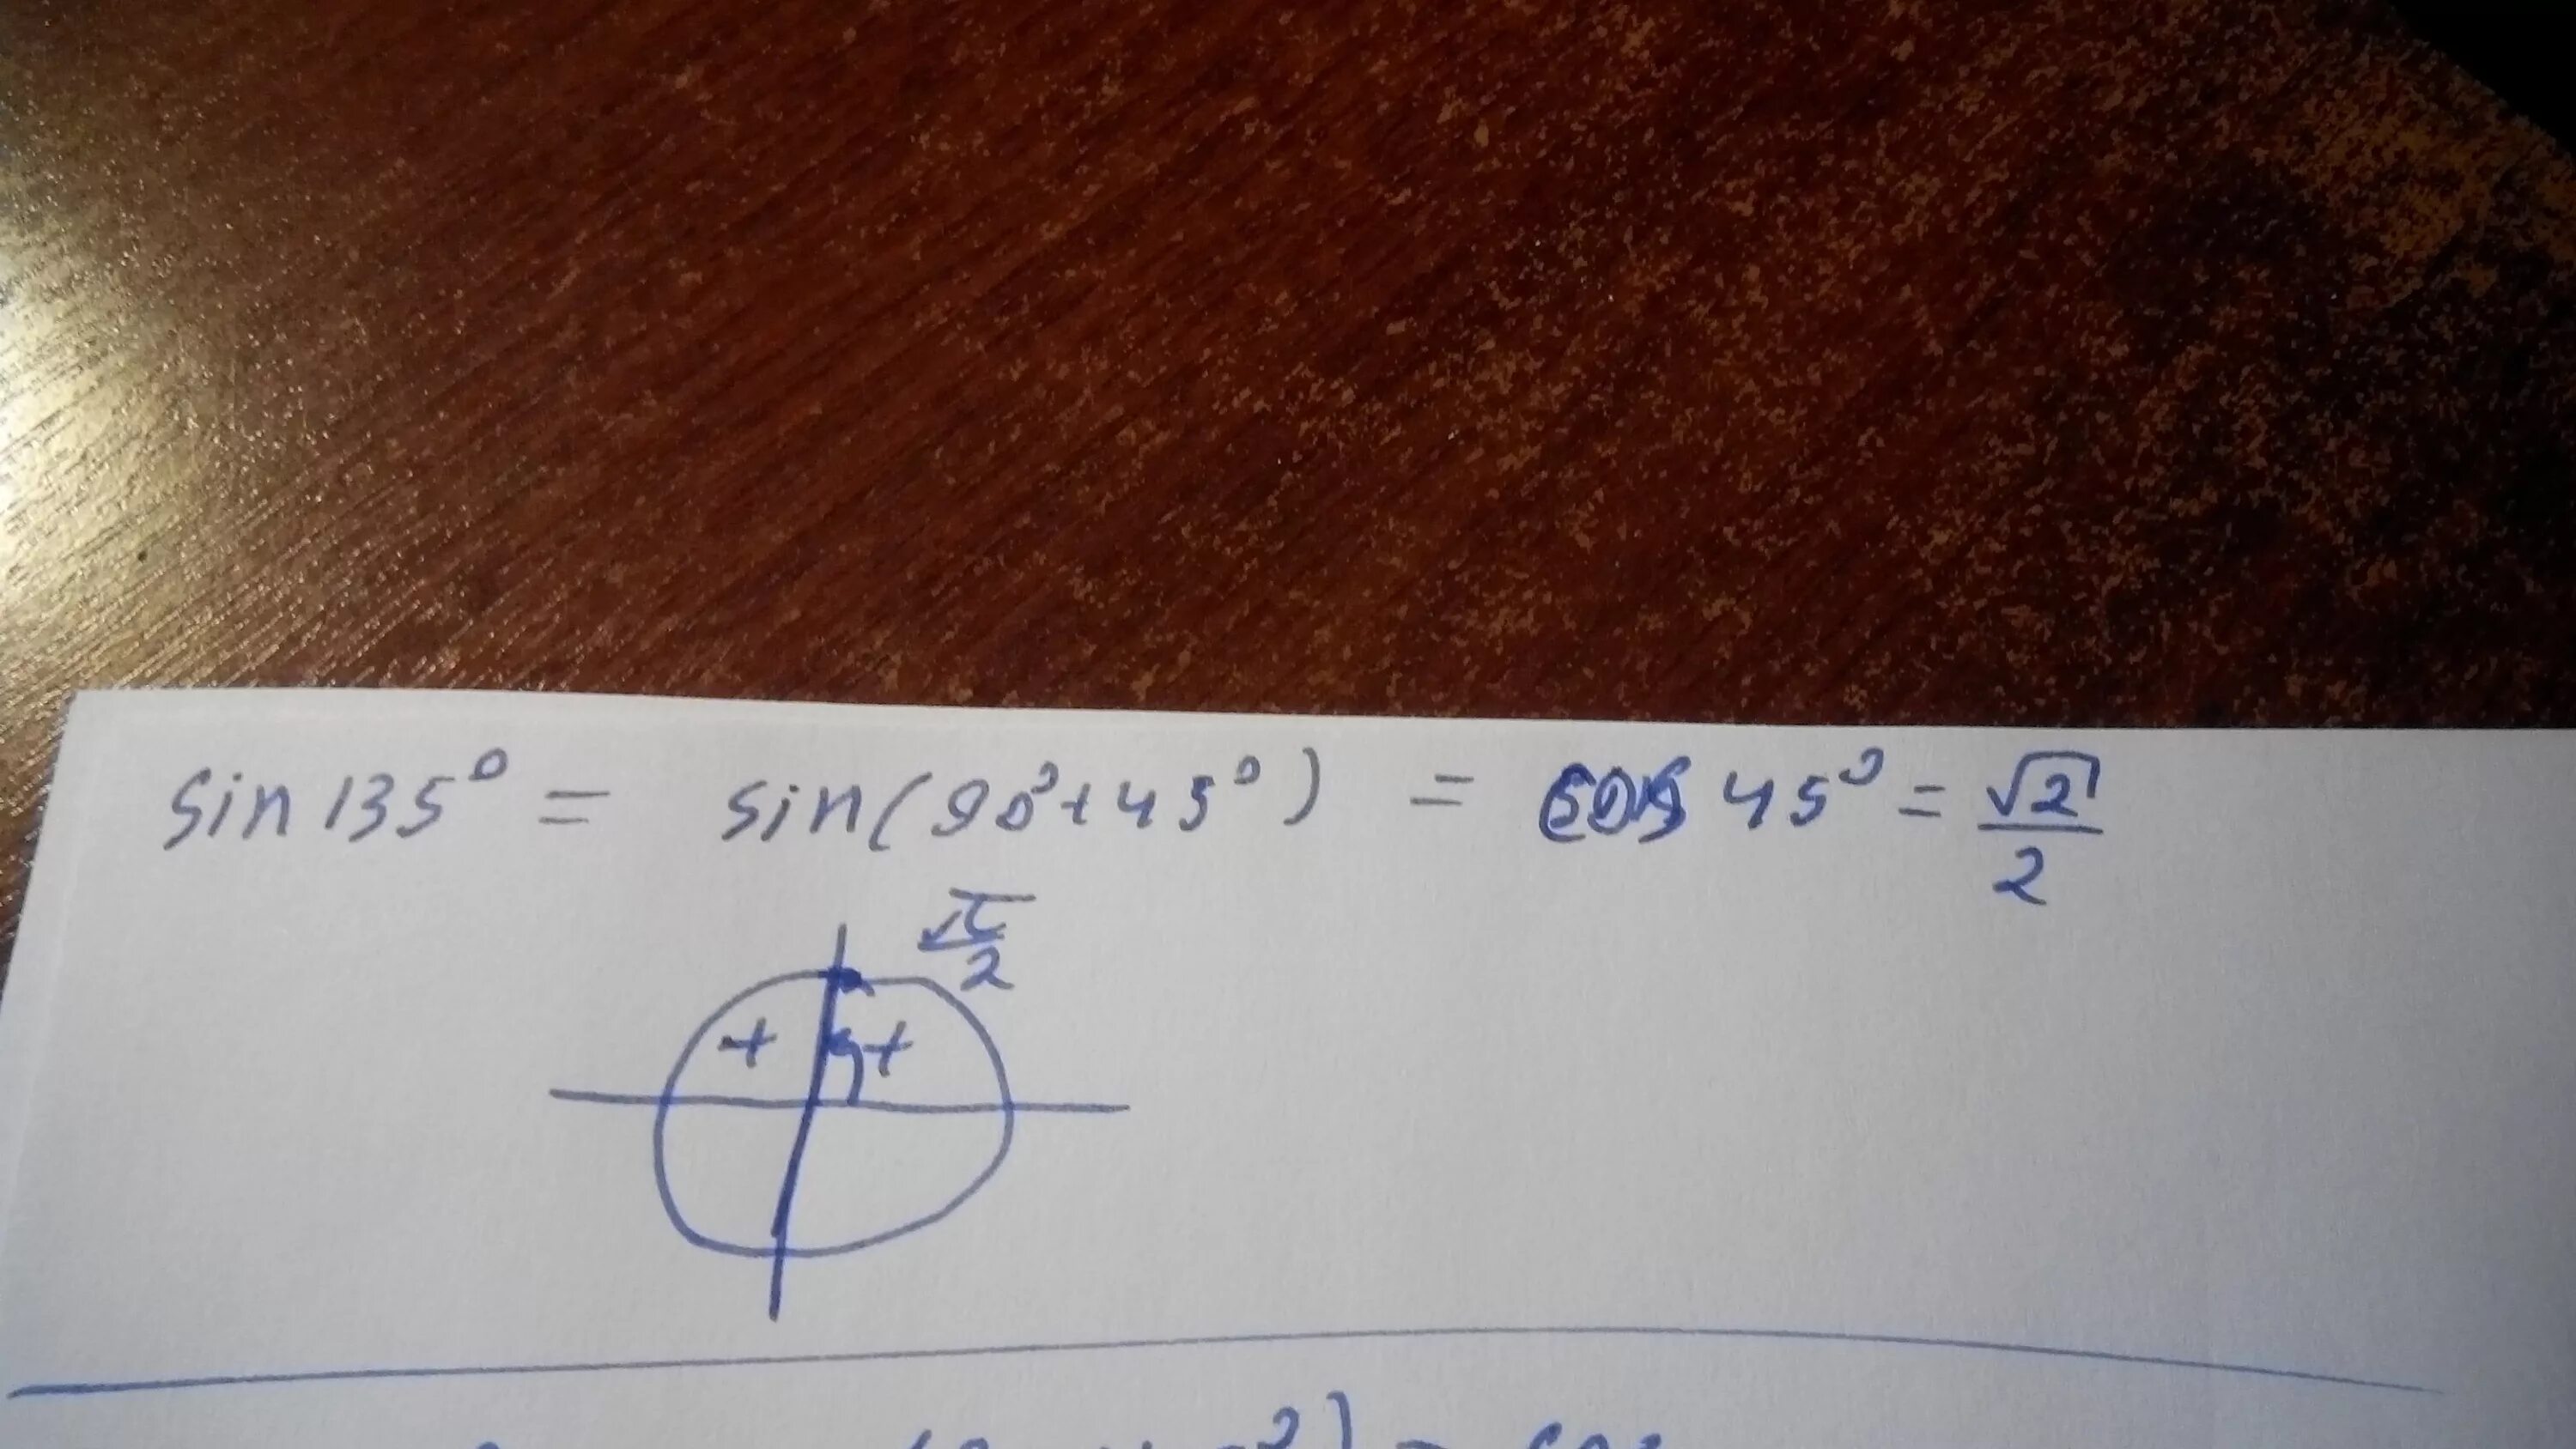 sin 135° = sin(90°+45°) = cos 45° = √2/2
π/2
+ +